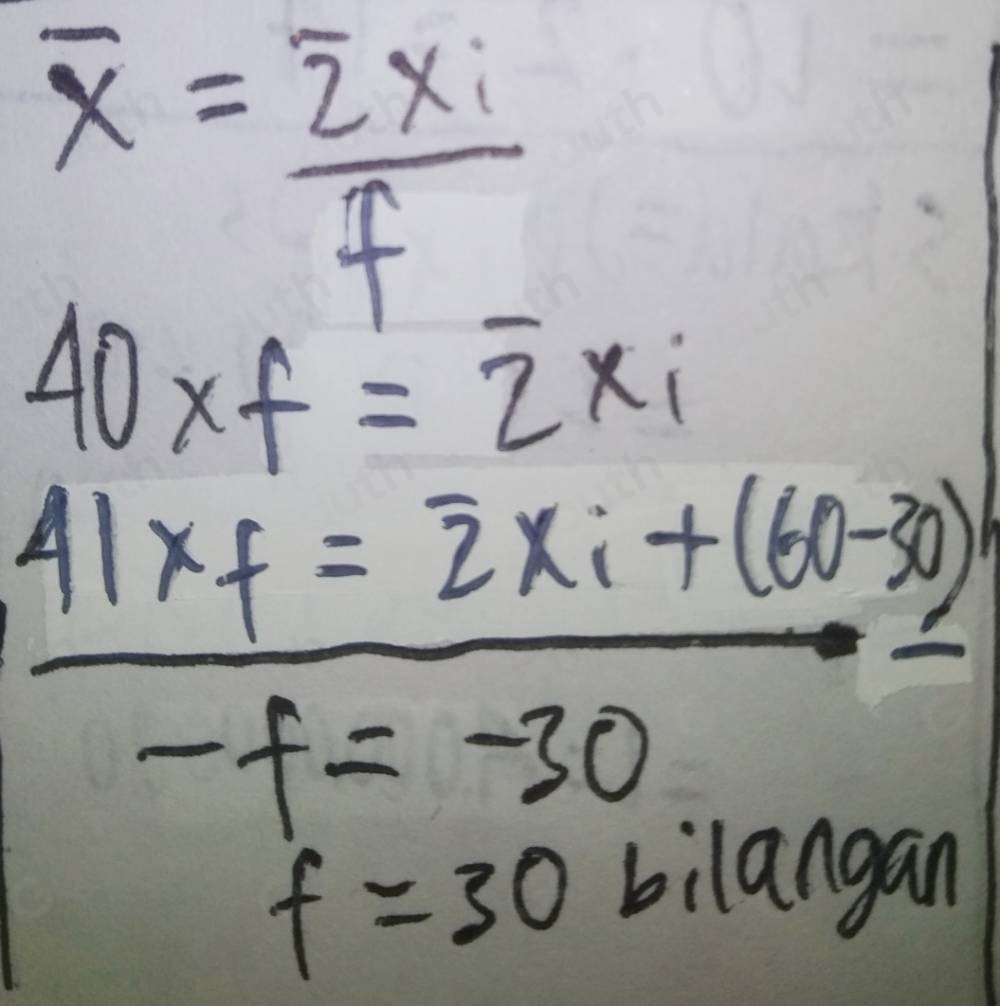 x̄ = Σxi / f
40 x f = Σxi
41 x f = Σxi + (60-30)
-
-f = -30
f = 30 bilangan